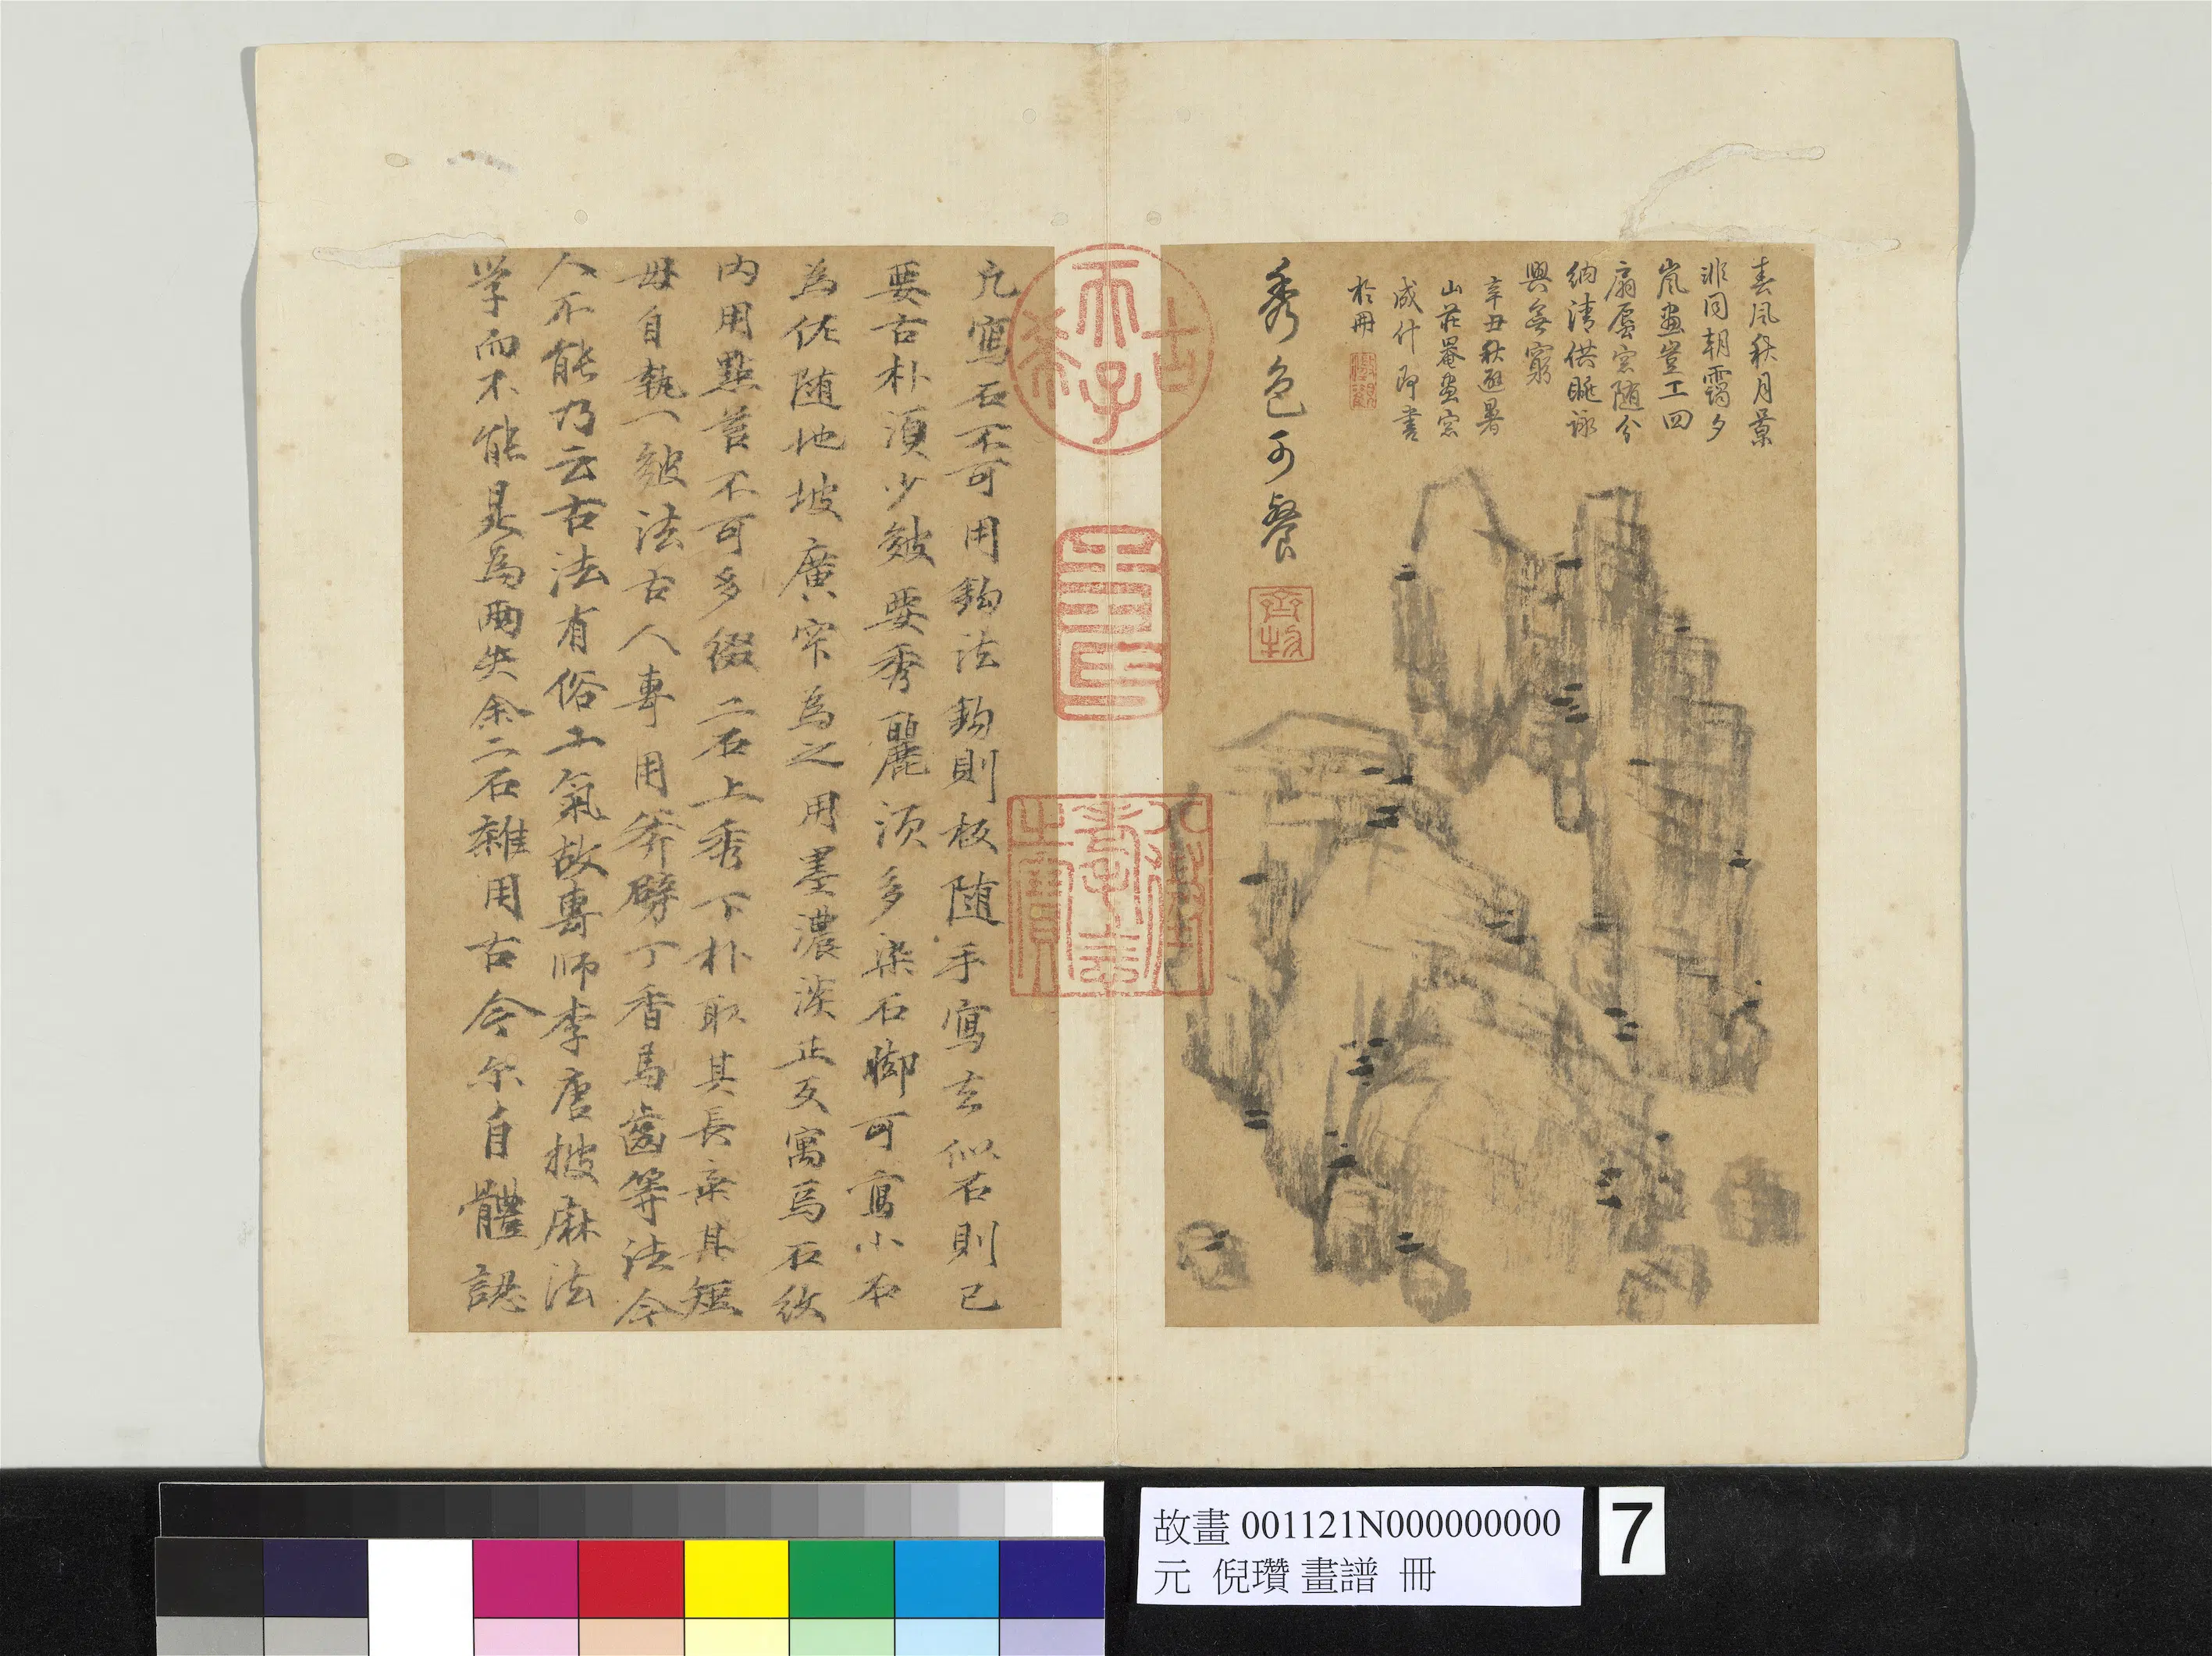 春風秋月景
非同朝靄夕
嵐畫豈工四
扇虛窓隨分
納清供眺詠
興無窮
辛丑秋避暑
山莊罨畫窓
成什即書
於冊
秀色可餐
齊物
古希天子
壽
八徵耄念之寶
凢寫石不可用鈎法鈎則板随手寫去似石則已
要古朴湏少皴要秀麗湏多染石脚可寫小石
為佐随地坡廣窄為之用墨濃淡正反寓焉石紋
内用點苔不可多綴二石上秀下朴取其長棄其短
毋自執一皴法古人專用斧劈丁香馬齒等法今
人不能乃云古法有俗工氣故專師李唐披麻法
学而不能是為兩失余二石雜用古今尓自體認
故畫 001121N000000000
元 倪瓚 畫譜 冊
7